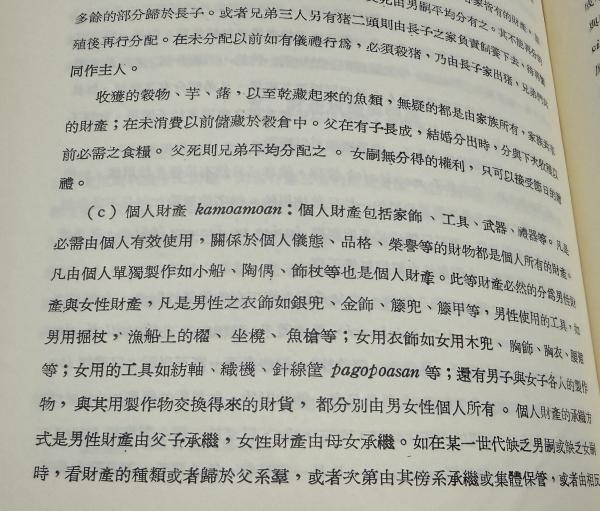 死由男嗣平均分有之。其不能
多餘的部分歸於長子。或者兄弟三人另有猪二頭則由長子之家負責飼養下去,
殖後再行分配。在未分配以前如有儀禮行爲,必須殺猪,乃由長子家出猪,兄弟們共
同作主人。
收獲的穀物、芋、藷,以至乾藏起來的魚類,無疑的都是由家族所有,家族共享
的財產;在未消費以前儲藏於穀倉中。父在有子長成,結婚分出時,分與下次收穫以
前必需之食糧。父死則兄弟平均分配之。女嗣無分得的權利,只可以接受節日的贈
禮。
(c)個人財產 kamoamoan:個人財產包括家飾、工具、武器、禮器等。凡是
必需由個人有效使用,關係於個人儀態、品格、榮譽等的財物都是個人所有的財產。
凡由個人單獨製作如小船、陶偶、飾杖等也是個人財產。此等財產必然的分爲男性財
產與女性財產,凡是男性之衣飾如銀兜、金飾、籐兜、籐甲等,男性使用的工具,如
男用掘杖,漁船上的櫂、坐櫈、魚槍等;女用衣飾如女用木兜、胸飾、胸衣、腰裙
等;女用的工具如紡軸、織機、針線筐 pagopoasan 等;還有男子與女子各人的製作
物,與其用製作物交換得來的財貨,都分別由男女性個人所有。個人財產的承繼方
式是男性財產由父子承繼,女性財產由母女承繼。如在某一世代缺乏男嗣或缺乏女嗣
時,看財產的種類或者歸於父系羣,或者次第由其傍系承繼或集體保管,或者由相互